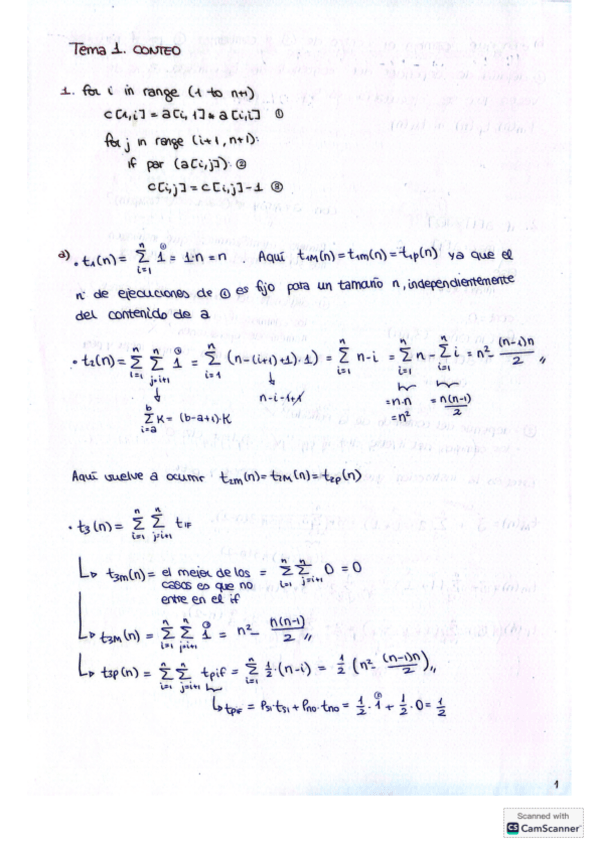 Tema 1. CONTEO
1. for i in range (1 to n+1)
c[1,i] = a[i,1] * a[i,i] ①
for j in range (i+1, n+1):
if par (a[i,j]): ②
c[i,j] = c[i,j] - 1 ③
a) • t1(n) = Σ_{i=1}^{n} 1 = 1·n = n . Aquí t1M(n) = t1m(n) = t1p(n) ya que el
nº de ejecuciones de ① es fijo para un tamaño n, independientemente
del contenido de a
• t2(n) = Σ_{i=1}^{n} Σ_{j=i+1}^{n} 1 = Σ_{i=1}^{n} (n-(i+1)+1)·1) = Σ_{i=1}^{n} n-i = Σ_{i=1}^{n} n - Σ_{i=1}^{n} i = n² - (n-1)n/2 //
Σ_{i=a}^{b} K = (b-a+1)·K
n-i-1+1
= n·n = n(n-1)/2
= n²
Aquí vuelve a ocurrir t2m(n) = t2M(n) = t2p(n)
• t3(n) = Σ_{i=1}^{n} Σ_{j=i+1}^{n} tIF
↳ t3m(n) = el mejor de los casos es que no entre en el if = Σ_{i=1}^{n} Σ_{j=i+1}^{n} 0 = 0
↳ t3M(n) = Σ_{i=1}^{n} Σ_{j=i+1}^{n} 1 = n² - n(n-1)/2 //
↳ t3p(n) = Σ_{i=1}^{n} Σ_{j=i+1}^{n} tpif = Σ_{i=1}^{n} 1/2·(n-i) = 1/2 (n² - (n-1)n/2) //
↳ tpIF = Psi·tsi + Pno·tno = 1/2·1 + 1/2·0 = 1/2
1
Scanned with
CS CamScanner